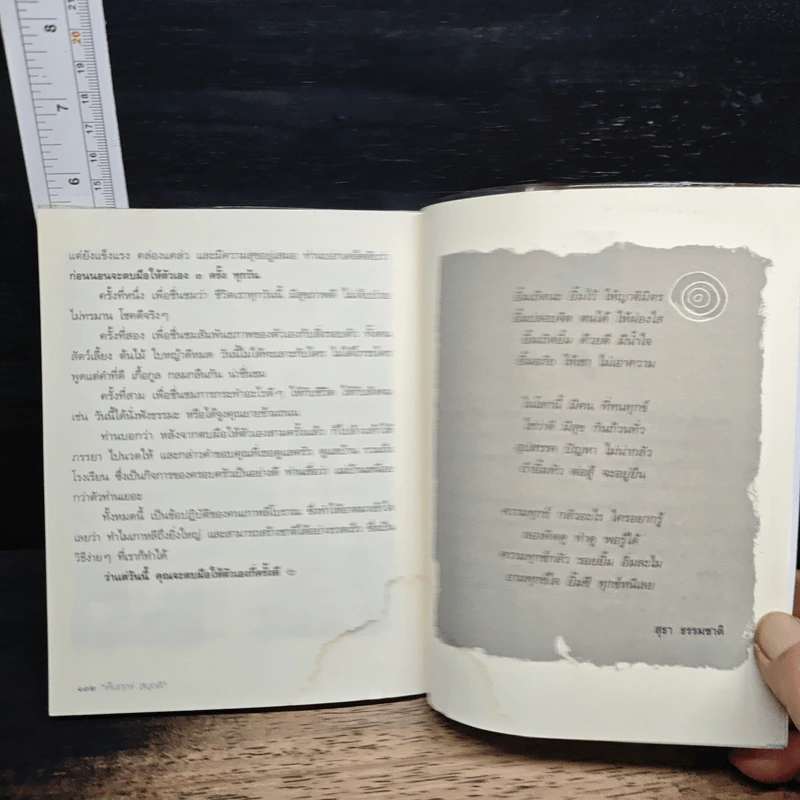 8
7
6
21
20
19
18
17
16
15
แต่ยังแข็งแรง คล่องแคล่ว และมีความสุขอยู่เสมอ ท่านบอกเคล็ดลับว่า
ก่อนนอนจะตบมือให้ตัวเอง ๓ ครั้ง ทุกวัน
ครั้งที่หนึ่ง เพื่อชื่นชมว่า ชีวิตเราทุกวันนี้ มีสุขภาพดี ไม่เจ็บป่วย
ไม่ทรมาน โชคดีจริงๆ
ครั้งที่สอง เพื่อชื่นชมสัมพันธภาพของตัวเองกับสิ่งรอบตัว ทั้งคน
สัตว์เลี้ยง ต้นไม้ ใบหญ้าทั้งหมด วันนี้ไม่ได้ทะเลาะกับใคร ไม่ได้โกรธใคร
พูดแต่คำที่ดี เกื้อกูล กลมกลืนกัน น่าชื่นชม
ครั้งที่สาม เพื่อชื่นชมการกระทำอะไรดีๆ ให้กับชีวิต ให้กับสังคม
เช่น วันนี้ได้นั่งฟังธรรมะ หรือได้จูงคุณยายข้ามถนน
ท่านบอกว่า หลังจากตบมือให้ตัวเองสามครั้งแล้ว
ภรรยา ไปนวดให้ และกล่าวคำขอบคุณที่เธอดูแลครัว ดูแลบ้าน รวมถึง
โรงเรียน ซึ่งเป็นกิจการของครอบครัวเป็นอย่างดี ท่านเชื่อว่า
กว่าตัวท่านเยอะ
ทั้งหมดนี้ เป็นข้อปฏิบัติของคนเกาหลีโบราณ ซึ่งทำให้อาตมาเข้าใจ
เลยว่า ทำไมเกาหลีถึงยิ่งใหญ่ และสามารถสร้างชาติได้อย่างรวดเร็ว ซึ่งเป็น
วิธีง่ายๆ ที่เราก็ทำได้
ว่าแต่วันนี้ คุณจะตบมือให้ตัวเองกี่ครั้งดี
ยิ้มเถิดนะ ยิ้มไว้ ให้ญาติมิตร
ยิ้มปลอบจิต ตนได้ ให้ผ่องใส
ยิ้มเถิดยิ้ม ด้วยดี มีน้ำใจ
ยิ้มอภัย ให้เขา ไม่เอาความ
ในโลกนี้ มีคน ที่ทนทุกข์
ใช่ว่าดี มีสุข กันถ้วนทั่ว
อุปสรรค ปัญหา ไม่น่ากลัว
ถ้ายิ้มหัว ต่อสู้ จะอยู่ยืน
ความทุกข์ กลัวอะไร ใครอยากรู้
ลองคิดดู ทำดู พอรู้ได้
ความทุกข์กลัว รอยยิ้ม อิ่มละไม
ยามทุกข์ใจ ยิ้มซี ทุกข์หนีเลย
สุธา ธรรมชาติ